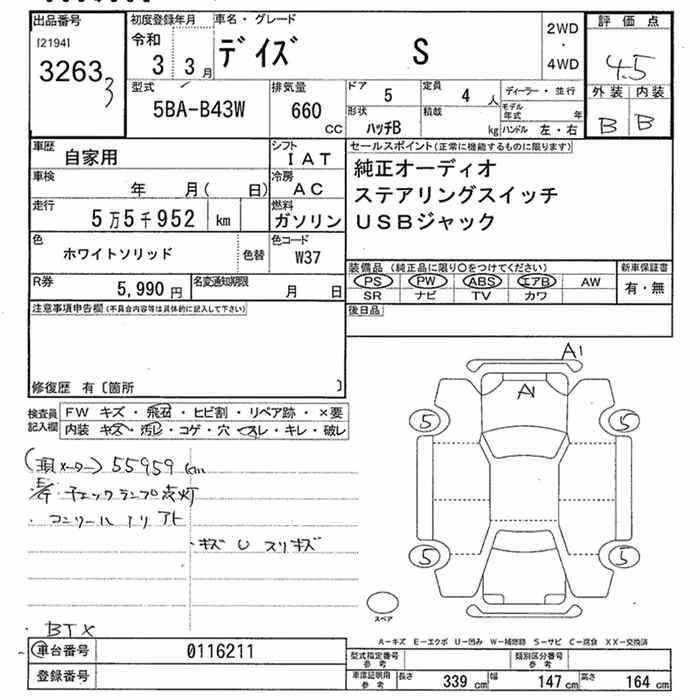 出品番号
[2194]
32633
初度登録年月
令和
3 3月
車名・グレード
デイズ S
2WD
・
4WD
評価点
4.5
外装 内装
B B
型式
5BA-B43W
排気量
660
CC
ドア
5
定員
4 人
ディーラー・並行
形状
ハッチB
積載
kg
モデル年式 年
ハンドル 左・右
車歴
自家用
シフト
IAT
車検
年 月( 日)
冷房
AC
走行
5万5千952 km
燃料
ガソリン
色
ホワイトソリッド
色替
色コード
W37
R券
5,990 円
名変通知期限
月 日
セールスポイント(正常に機能するものに限ります)
純正オーディオ
ステアリングスイッチ
USBジャック
装備品 (純正品に限り○をつけてください)
PS PW ABS エアB AW
SR ナビ TV カワ
新車保証書
有・無
後日品
注意事項申告欄(不具合内容等は具体的に記入して下さい)
修復歴 有〔箇所 〕
検査員
記入欄
FW キズ・飛石・ヒビ割・リペア跡・×要
内装 キズ・汚レ・コゲ・穴・スレ・キレ・破レ
(現メーター) 55959 km
チェックランプ点灯
・キズ U スリキズ
・BTX
A1
A1
5 5
5 5
スペア
A-キズ E-エクボ U-凹み W-補修跡 S-サビ C-腐食 XX-交換済
車台番号
0116211
登録番号
型式指定番号
参考
類別区分番号
参考
車庫証明用
参考
長さ 339 cm 幅 147 cm 高さ 164 cm